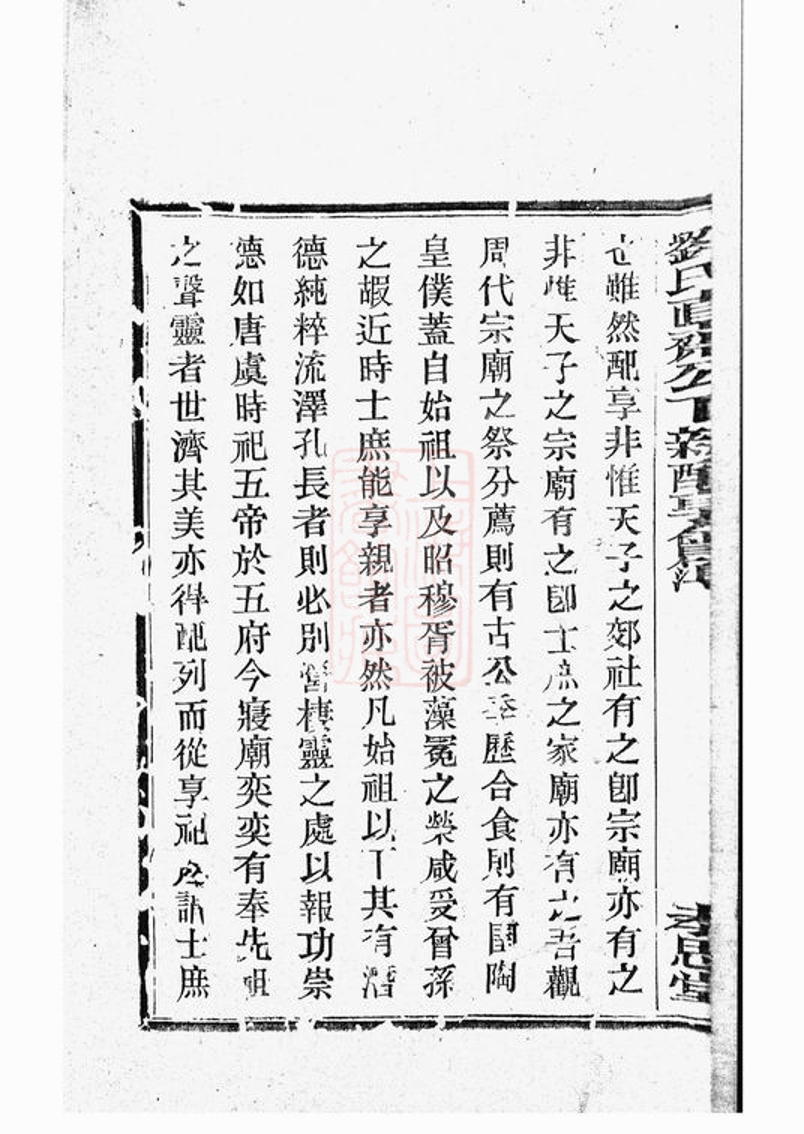 也雖然配享非惟天子之郊社有之卽宗廟亦有之
非惟天子之宗廟有之卽士庶之家廟亦有之吾觀
周代宗廟之祭分薦則有古公季歷合食則有圉陶
皇僕蓋自始祖以及昭穆胥被藻冕之榮咸受曾孫
之嘏近時士庶能享親者亦然凡始祖以下其有潛
德純粹流澤孔長者則必別營棲靈之處以報功崇
德如唐虞時祀五帝於五府今寢廟奕奕有奉先祖
之聲靈者世濟其美亦得配列而從享祀 訓士庶
孝思堂